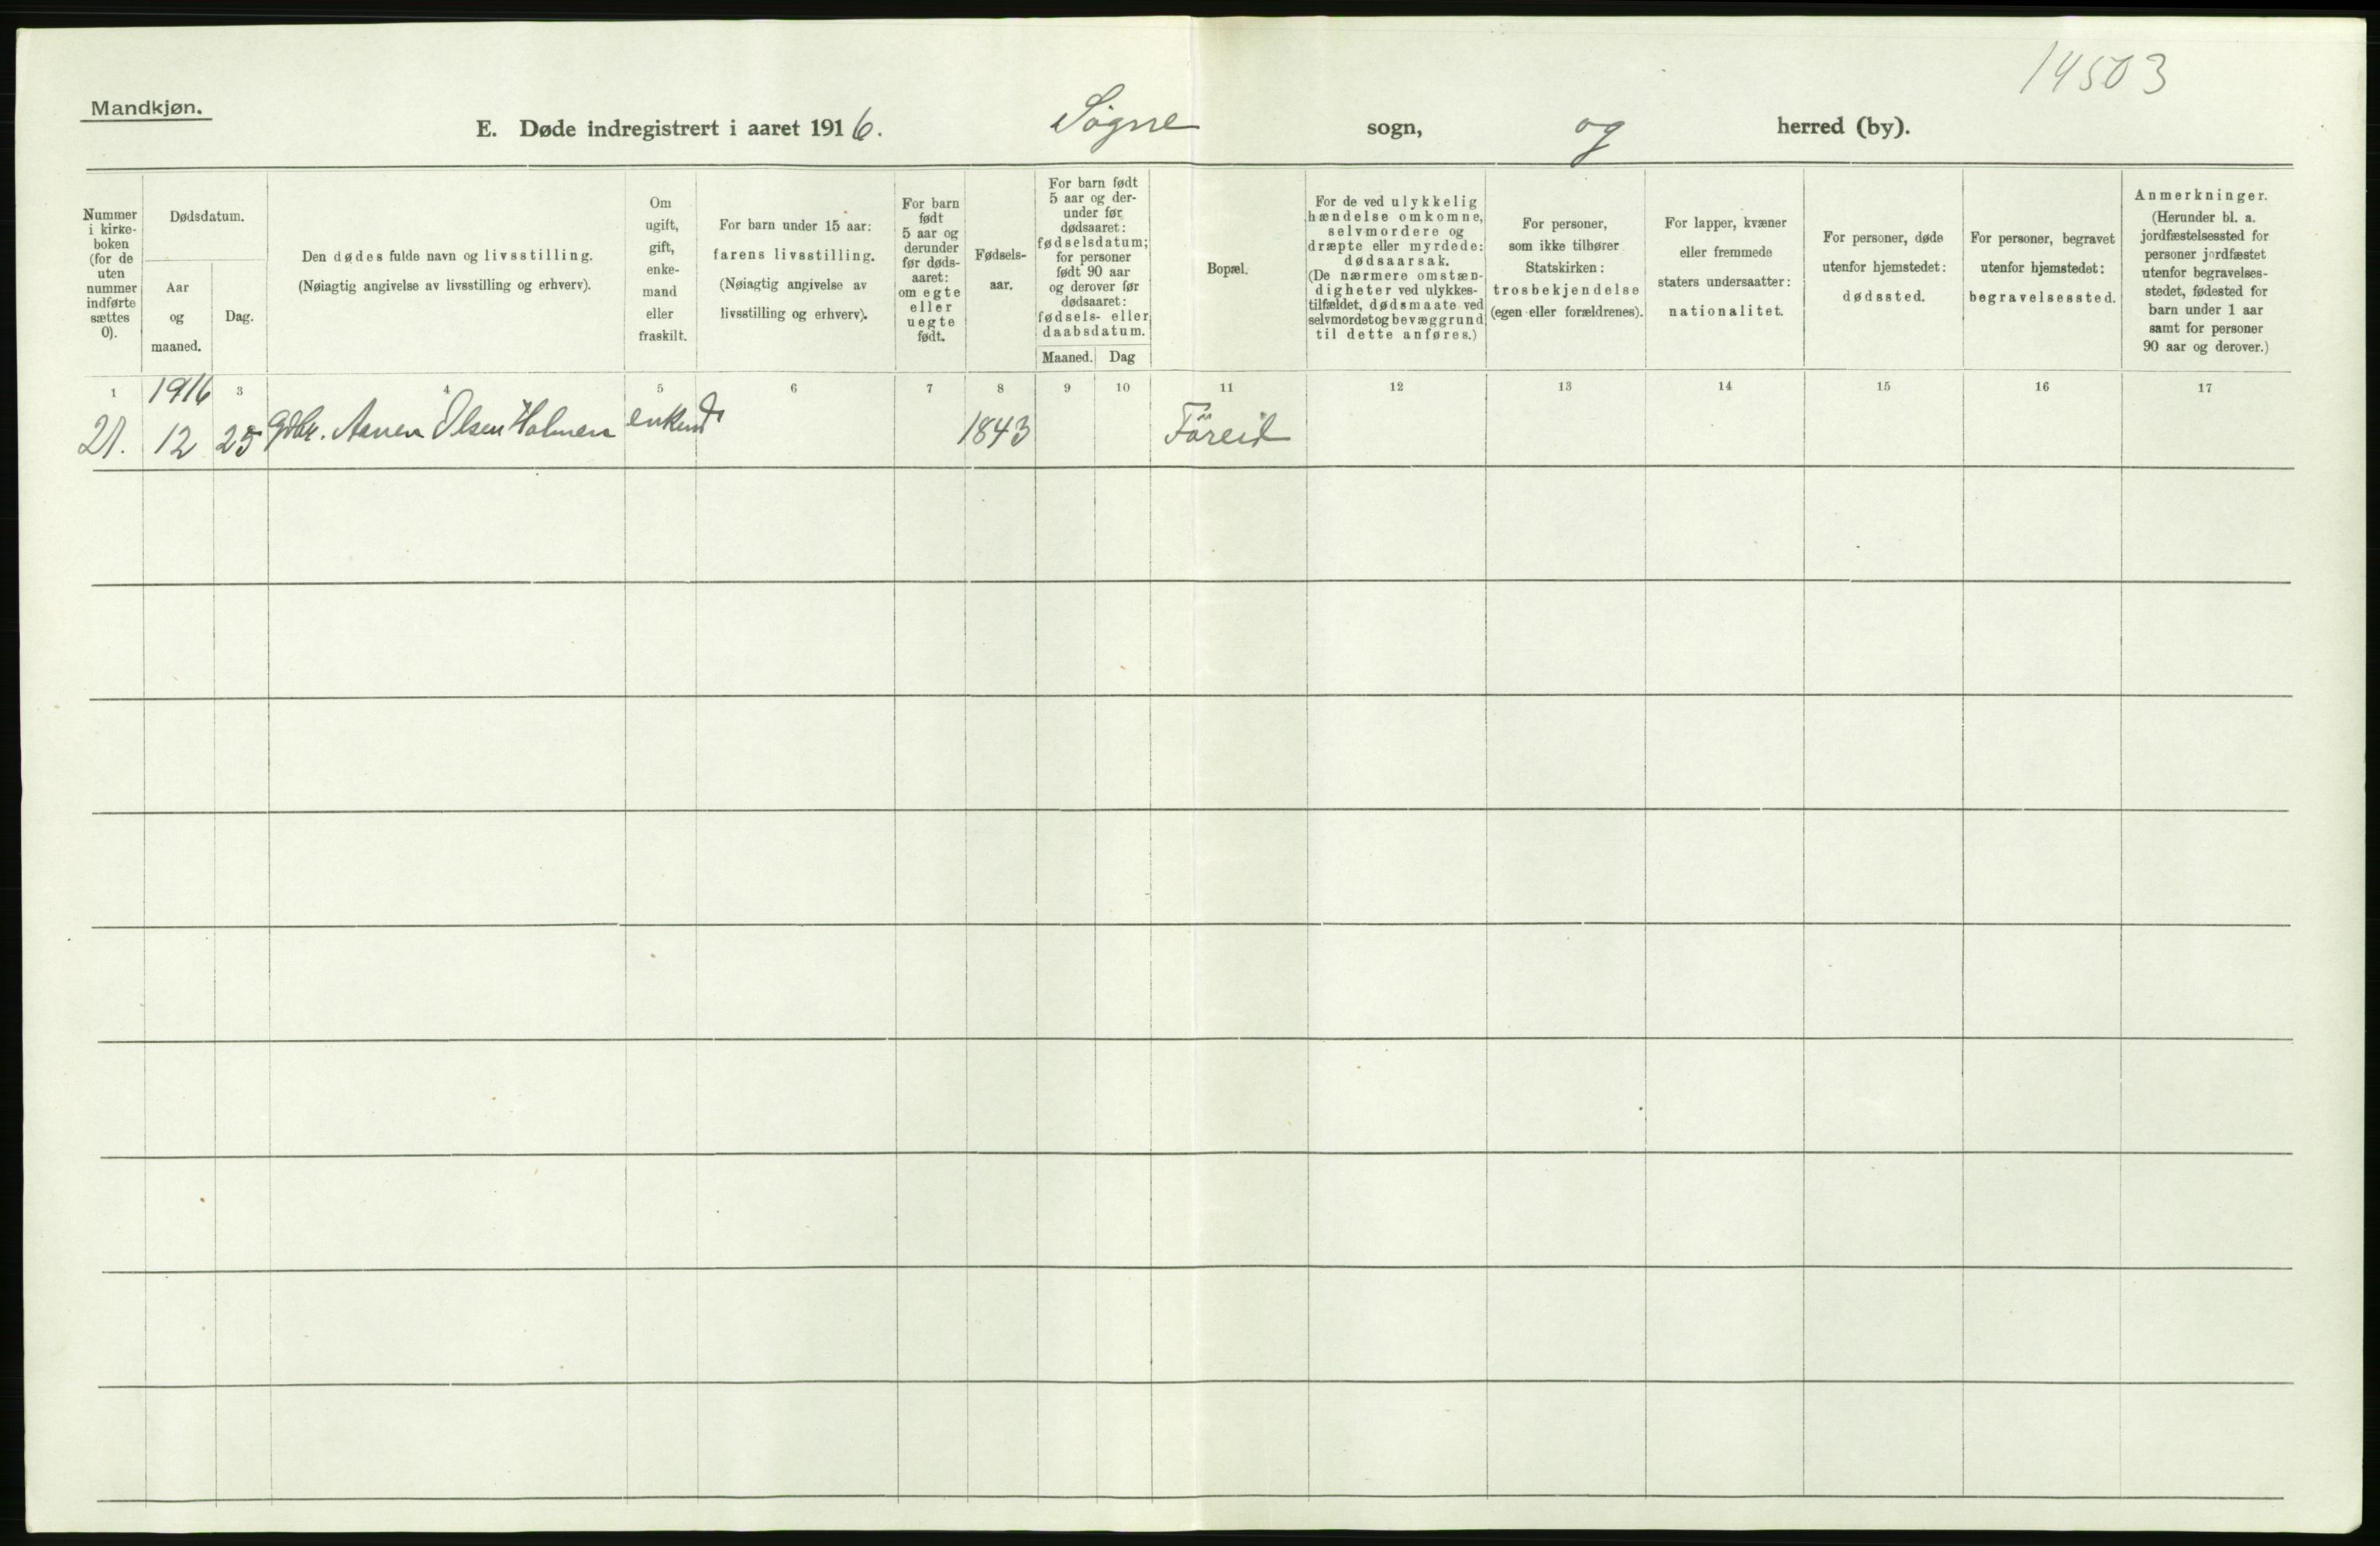 14503
Mandkjøn.
E. Døde indregistrert i aaret 1916. Søgne sogn, og herred (by).
Nummer
i kirke-
boken
(for de
uten
nummer
indførte
sættes
0).
Dødsdatum.
Aar
og
maaned.
Dag.
Den dødes fulde navn og livsstilling.
(Nøiagtig angivelse av livsstilling og erhverv).
Om
ugift,
gift,
enke-
mand
eller
fraskilt.
For barn under 15 aar:
farens livsstilling.
(Nøiagtig angivelse av
livsstilling og erhverv).
For barn
født
5 aar og
derunder
før døds-
aaret:
om egte
eller
uegte
født.
Fødsels-
aar.
For barn født
5 aar og der-
under før
dødsaaret:
fødselsdatum;
for personer
født 90 aar
og derover før
dødsaaret:
fødsels- eller
daabsdatum.
Maaned. Dag
Bopæl.
For de ved ulykkelig
hændelse omkomne,
selvmordere og
dræpte eller myrdede:
dødsaarsak.
(De nærmere omstæn-
digheter ved ulykkes-
tilfældet, dødsmaate ved
selvmordet og bevæggrund
til dette anføres.)
For personer,
som ikke tilhører
Statskirken:
trosbekjendelse
(egen eller forældrenes).
For lapper, kvæner
eller fremmede
staters undersaatter:
nationalitet.
For personer, døde
utenfor hjemstedet:
dødssted.
For personer, begravet
utenfor hjemstedet:
begravelsessted.
Anmerkninger.
(Herunder bl. a.
jordfæstelsessted for
personer jordfæstet
utenfor begravelses-
stedet, fødested for
barn under 1 aar
samt for personer
90 aar og derover.)
1 1916 3 4 5 6 7 8 9 10 11 12 13 14 15 16 17
21. 12 25 Gdbr. Aanen Olsen Holmen enkemd 1843 Føreid